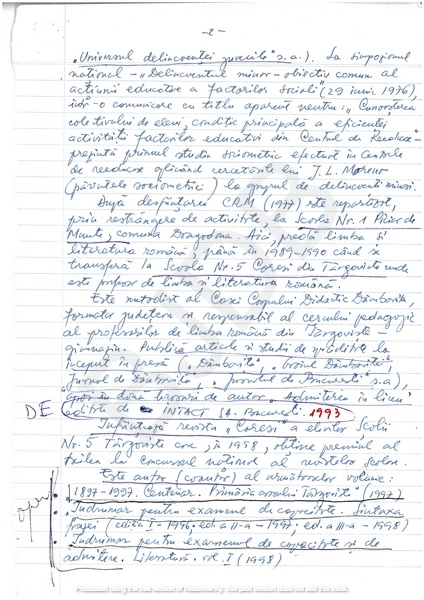 - 2 -
„Universul delincvenței juvenile" ș.a.). La simpozionul
național - „Delincventul minor - obiectiv comun al
acțiunii educative a factorilor sociali" (29 iunie 1976),
într-o comunicare cu titlu aparent neutru: „Cunoașterea
colectivului de elevi, condiție principală a eficienței
activității factorilor educativi din Centrul de Reeducare" -
prezintă primul studiu sociometric efectuat în Centrele
de reeducare aplicând cercetările lui J.L. Moreno
(părintele sociometriei) la grupul de delincvenți minori.
După desființarea CRM (1977) este repartizat,
prin restrângere de activitate, la Școala Nr. 1 Picior de
Munte, comuna Dragodana. Aici, predă limba și
literatura română până în 1989-1990 când se
transferă la Școala Nr. 5 Coresi din Târgoviște unde
este profesor de limba și literatura română.
Este metodist al Casei Corpului Didactic Dâmbovița,
formator județean și responsabil al cercului pedagogic
al profesorilor de limba română din Târgoviște -
gimnaziu. Publică articole și studii de specialitate la
început în presă („Dâmbovița", „Eroina Dâmboviței",
„Jurnal de Dâmbovița", „ de București" ș.a),
apoi în două broșuri de autor „Admiterea în liceu"
DE editate de INTACT SA - București. 1993
Înființează revista „Coresi" a elevilor Școlii
Nr. 5 Târgoviște care, în 1998, obține premiul al
treilea la concursul național al revistelor școlare.
Este autor (coautor) al următoarelor volume:
„1897-1997. Centenar. Primăria orașului Târgoviște" (1997)
„Îndrumar pentru examenul de capacitate. Sintaxa
frazei (ediția I - 1996, ed. a II-a - 1997, ed. a III-a - 1998)
Îndrumar pentru examenul de capacitate și de
admitere. Literatură. vol. I (1998)
opere